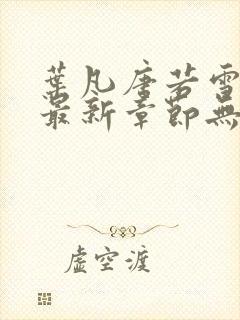 葉凡唐若雪
最新章節無
虛空渡